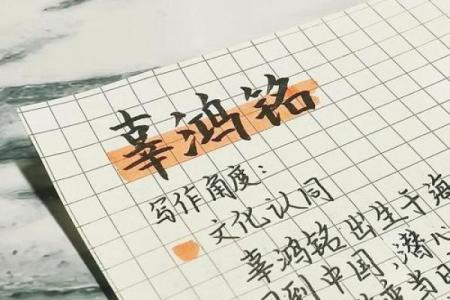 辜鸿铭
写作角度：
文化认同
辜鸿铭出生于海
回到中国，潜心
当时